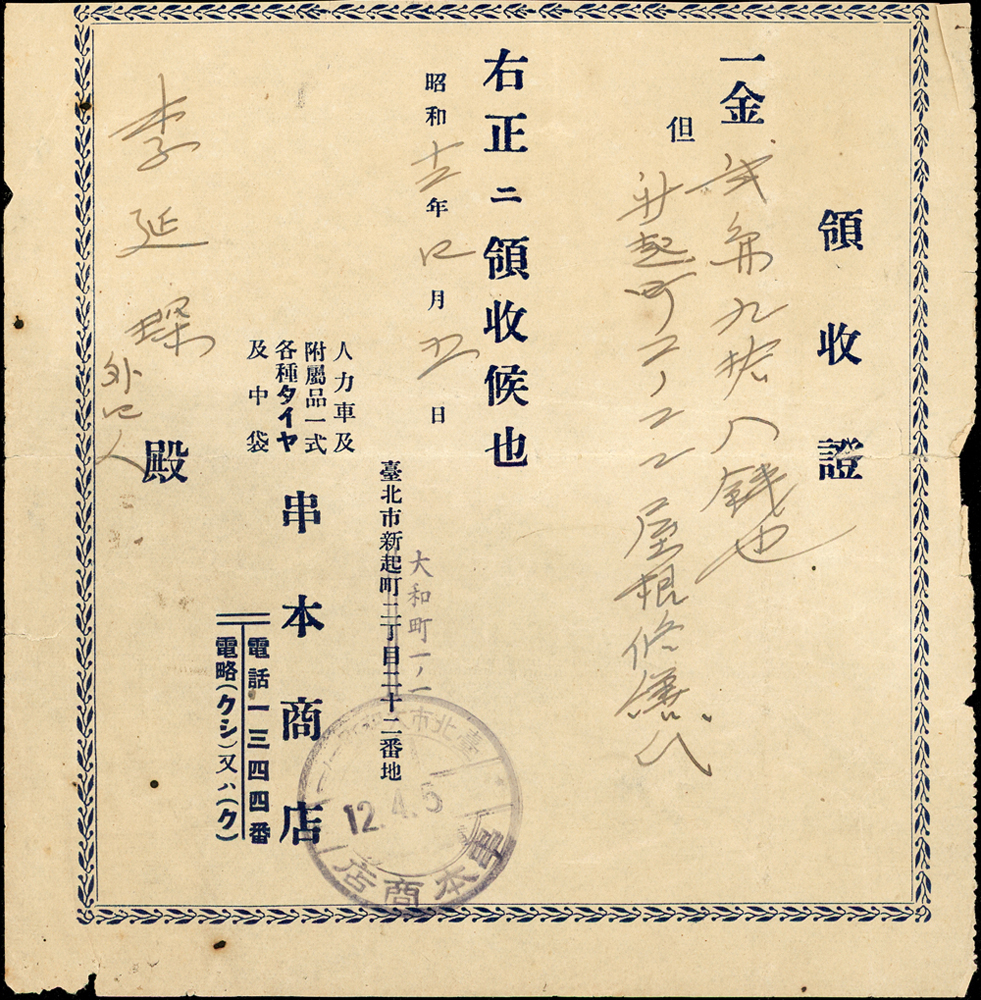 領收證
一金 貳圓九拾八錢也
但 新起町二ノ二二屋根修繕代
右正ニ領收候也
昭和十二年四月五日
大和町一ノ一
臺北市新起町二丁目二十二番地
人力車及
附屬品一式
各種タイヤ
及中袋
串本商店
電話一三四四番
電略(クシ)又ハ(ク)
李延
外四人
殿
臺北市大和町一ノ一
12.4.5
串本商店